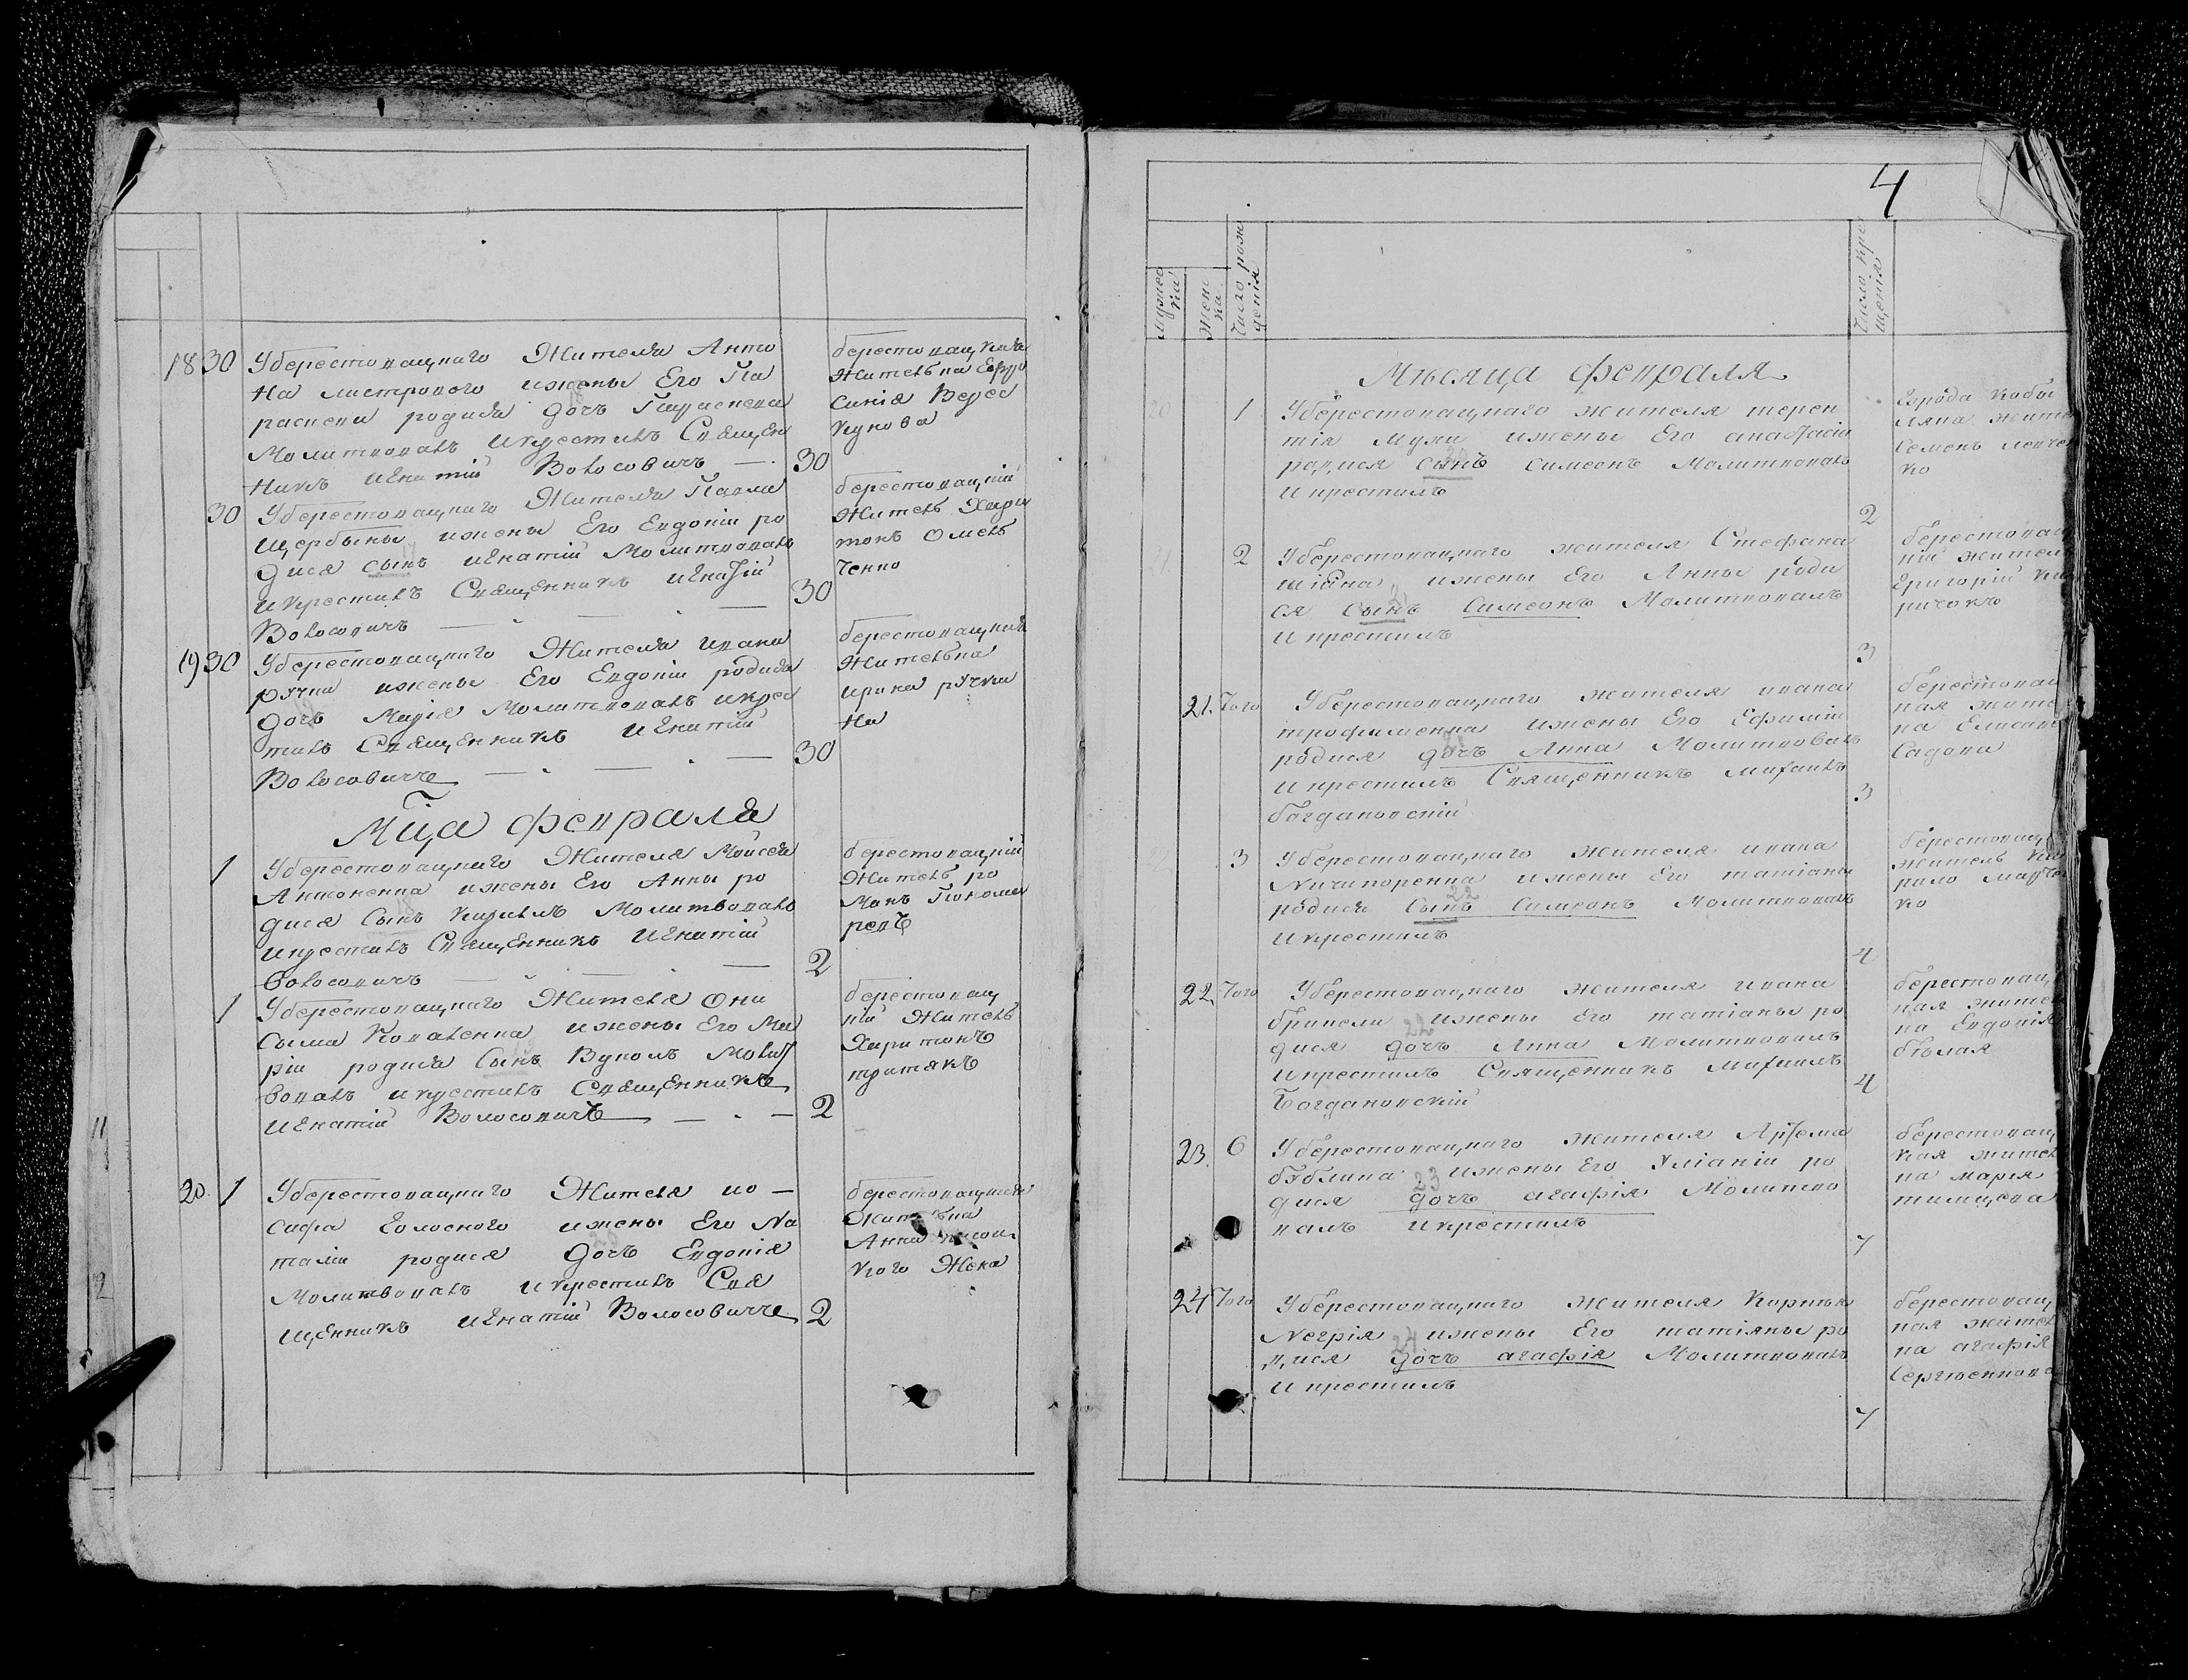 18 30 Уберестовацкого Жителя Анто
на листрового ижены Его Па
раскеви родися дочъ Параскева
Молитвовалъ икрестилъ Священ
никъ игнатій Волосовичъ — 30
берестовацкая
Жителька Евфро
синія
кунова
30 Уберестовацкого Жителя Павла
щербины ижены Его Евдокіи ро
дися сынъ игнатій Молитвовалъ
икрестилъ Священникъ игнатій 30
Волосовичъ — — —
берестовацкій
Житель Хари
тонъ Омель
ченко
19 30 Уберестовацкого Жителя ивана
ручки ижены Его Евдокіи родися
дочъ Марія Молитвовалъ икрес
тилъ Священникъ игнатій
Волосовичъ — — — 30
берестовацкая
Жителька
ирина ручки
на
Мца февраля
1 Уберестовацкого Жителя Мойсея
Антоненка ижены Его Анны ро
дися Сынъ кирилъ Молитвовалъ
икрестилъ Священникъ Игнатій
Волосовичъ — — — 2
берестовацкій
Житель ро
манъ Понома
ревъ
1 Уберестовацкого Жителя Они
сыма Коваленка ижены Его Ма
ріи родися Сынъ Вуколъ Молит
вовалъ икрестилъ Священникъ
игнатій Волосовичъ — — 2
берестовац
кій Житель
Харитонъ
третякъ
20. 1 Уберестовацкого Жителя ио —
сифа голосного ижены Его На
таліи родися Дочъ Евдокія
Молитвовалъ икрестилъ Свя
щенникъ игнатій Волосовичъ 2
берестовацкая
Жителька
Анна
кого Жена
4
мужес
ка
Жен
ка
Число рож
денія
Число кре
щенія
Мѣсяца февраля
1 Уберестовацкаго жителя терен
тія мухи ижены Его анастасіи
родися сынъ симеонъ Молитвовалъ
икрестилъ
2
города кобы
ляка жите
Семенъ левчен
ко
2 Уберестовацкаго жителя Стефана
ижены Его Анны роди
ся сынъ Симеонъ Молитвовалъ
икрестилъ
3
берестовац
кій жител
григорій ки
ричокъ
21. Того Уберестовацкаго жителя ивана
трофименка ижены Его Ефиміи
родися дочъ Анна Молитвовалъ
икрестилъ Священникъ михаилъ
богдановскій
3
берестовац
кая жите
ка Елисаве
Садова
3 Уберестовацкаго жителя ивана
Ничипоренка ижены Его татіаны
родися Сынъ Симеонъ Молитвовалъ
икрестилъ
4
берестовац
житель ки
рило марчен
ко
22. Того Уберестовацкаго жителя ивана
брикели ижены Его татіаны ро
дися дочъ Анна Молитвовалъ
икрестилъ Священникъ михаилъ
Богдановскій
4
берестовац
кая жите
ка Евдокія
бѣлая
23. 6 Уберестовацкаго жителя Артема
бублика ижены Его Уліаніи ро
дися дочъ агафія Молитво
валъ икрестилъ
7
берестовац
кая жител
ка марія
тимцова
24 Того Уберестовацкаго жителя Корнѣя
Негрія ижены Его татіяны ро
дися дочъ агафія Молитвовалъ
икрестилъ
7
берестовац
кая жител
ка агафія
Сергіенкова